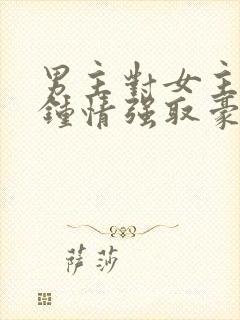 男主對女主
鍾情强取豪
萨莎